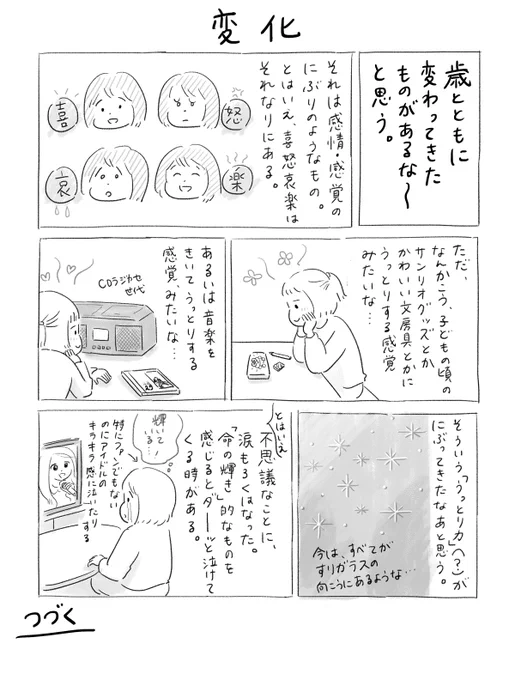 変化
歳とともに
変わってきた
ものがあるな〜
と思う。
それは感情・感覚の
にぶりのようなもの。
とはいえ、喜怒哀楽は
それなりにある。
怒
喜
楽
哀
ただ、
なんかこう、子どもの頃の
サンリオグッズとか
かわいい文房具とかに
うっとりする感覚
みたいな…
あるいは音楽を
きいてうっとりする
感覚、みたいな…
CDラジカセ
世代
そういう「うっとり力」(?)が
にぶってきたなあと思う。
今は、すべてが
すりガラスの
向こうにあるような…
とはいえ、
不思議なことに、
涙もろくはなった。
「命の輝き」的なものを
感じるとダーーッと泣けて
くる時がある。
輝いて
いる…!
特にファンでもない
のにアイドルの
キラキラ感に泣いたりする
つづく